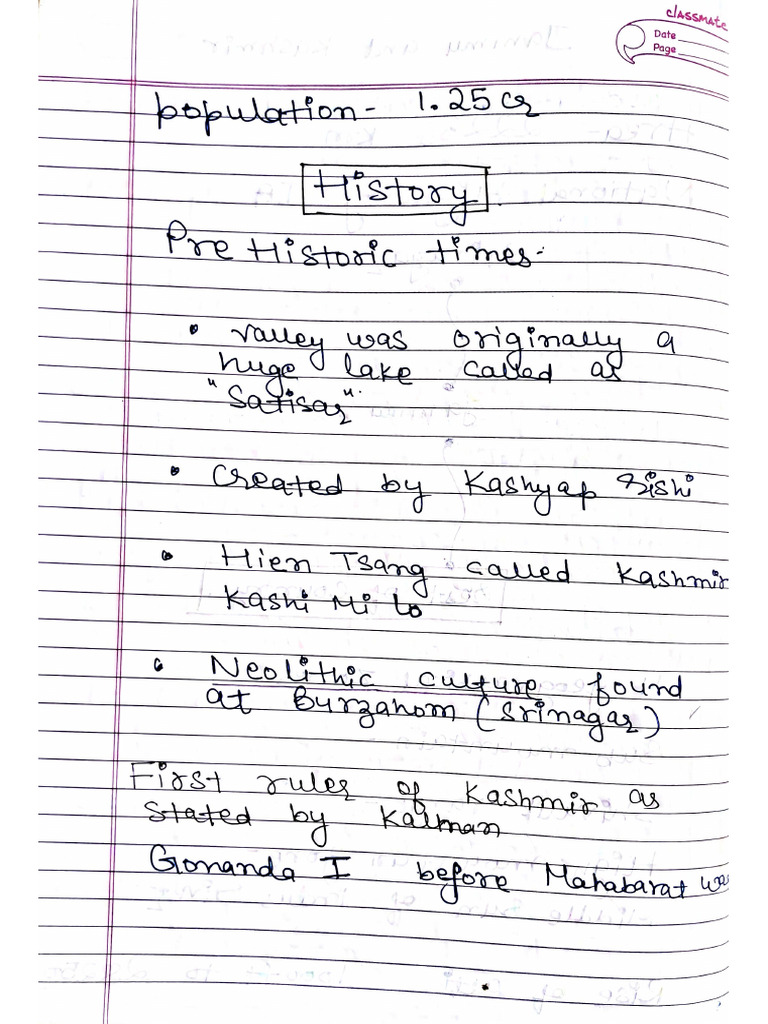 classmate
Date
Page
population - 1.25 cr
History
Pre Historic times -
• valley was originally a
huge lake called as
"Satisar".
• Created by Kashyap rishi
• Hien Tsang called Kashmir
Kashi Mi Lo
• Neolithic culture found
at Burzahom (Srinagar)
First ruler of Kashmir as
stated by Kalhan
Gonanda I before Mahabarat war